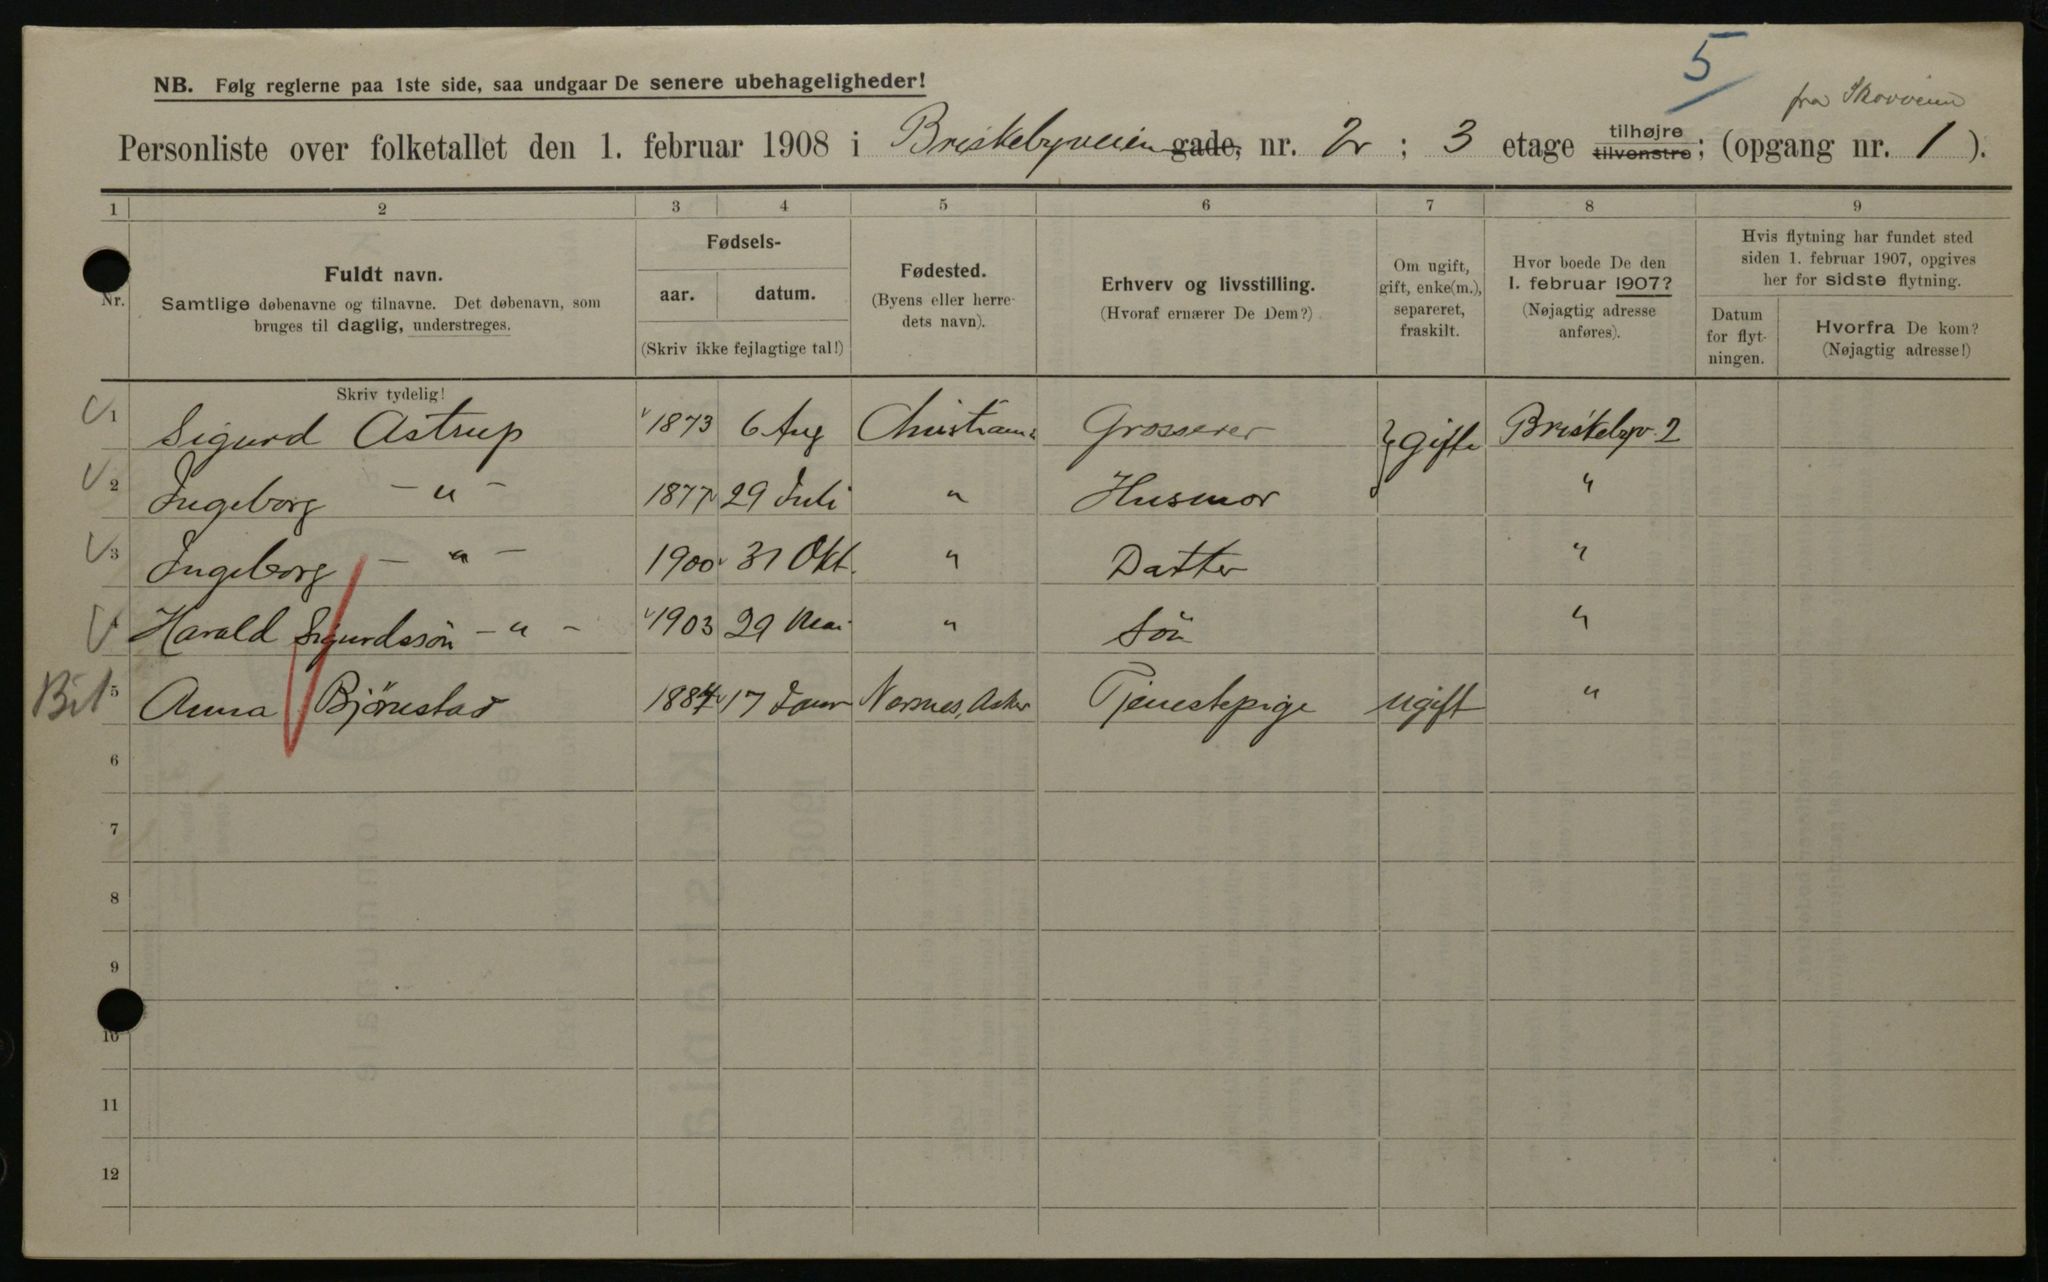 5
fra Skovveien
NB. Følg reglerne paa 1ste side, saa undgaar De senere ubehageligheder!
Personliste over folketallet den 1. februar 1908 i Briskebyveien gade, nr. 2 ; 3 etage tilhøjre tilvenstre ; (opgang nr. 1 ).
1 2 3 4 5 6 7 8 9
Nr.
Fuldt navn.
Samtlige døbenavne og tilnavne. Det døbenavn, som
bruges til daglig, understreges.
Fødsels-
aar. datum.
(Skriv ikke fejlagtige tal!)
Fødested.
(Byens eller herre-
dets navn).
Erhverv og livsstilling.
(Hvoraf ernærer De Dem?)
Om ugift,
gift, enke(m.),
separeret,
fraskilt.
Hvor boede De den
1. februar 1907?
(Nøjagtig adresse
anføres).
Hvis flytning har fundet sted
siden 1. februar 1907, opgives
her for sidste flytning.
Datum
for flyt-
ningen.
Hvorfra De kom?
(Nøjagtig adresse!)
Skriv tydelig!
1 Sigurd Astrup 1873 6 Aug Christiania Grosserer } gifte Briskebyv. 2
2 Ingeborg – " – 1877 29 Juli " Husmor "
3 Ingeborg – " – 1900 31 Okt. " Datter "
4 Harald Sigurdssön – " – 1903 29 Mai " Sön "
5 Anna Björnstad 1884 17 Janr Nersnes, Asker Tjenestepige ugift "
6
7
8
9
10
11
12